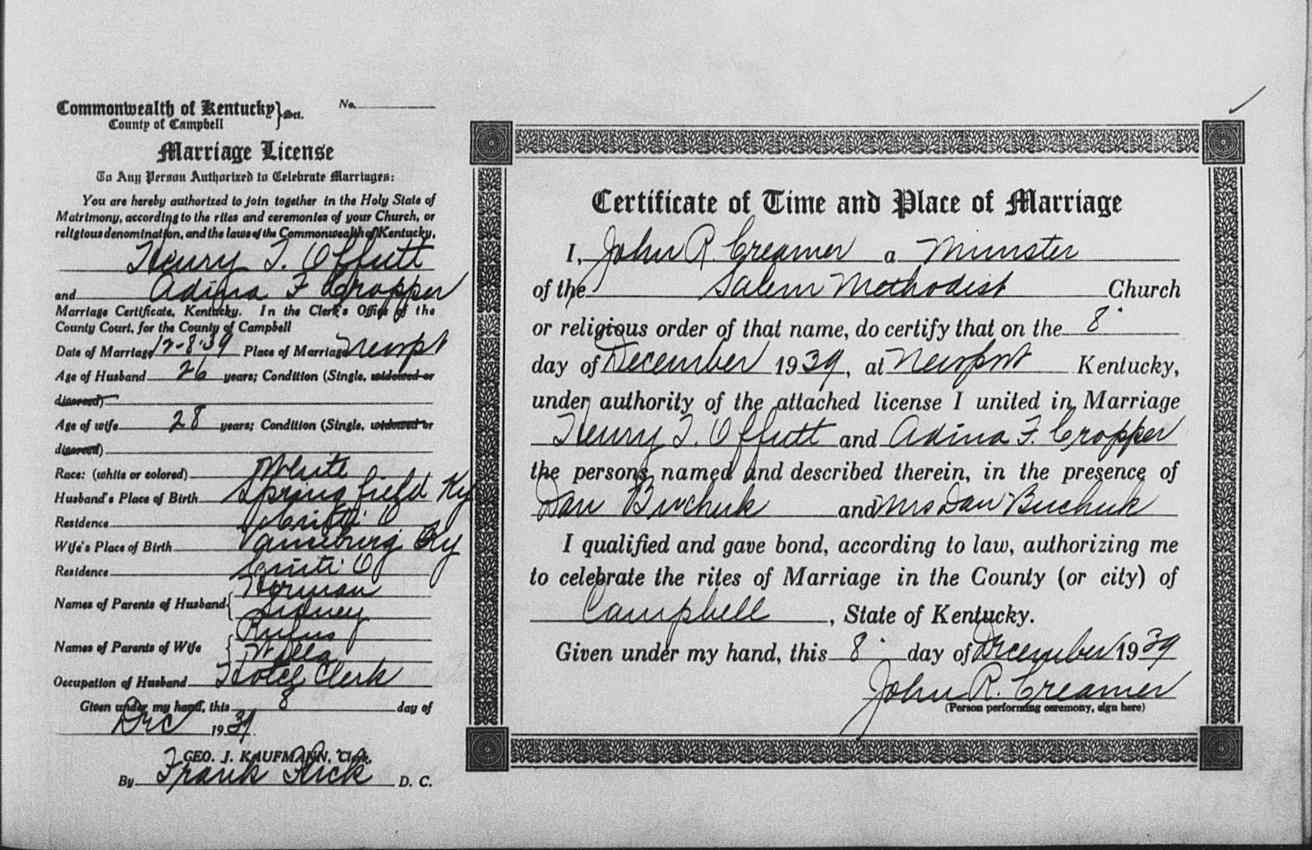 Commonwealth of Kentucky } Sct.
County of Campbell
No.
Marriage License
To Any Person Authorized to Celebrate Marriages:
You are hereby authorized to join together in the Holy State of
Matrimony, according to the rites and ceremonies of your Church, or
religious denomination, and the laws of the Commonwealth of Kentucky,
Henry T. Offutt
and Adina F Cropper
Marriage Certificate, Kentucky. In the Clerk's Office of the
County Court, for the County of Campbell
Date of Marriage 12-8-39 Place of Marriage Newpt
Age of Husband 26 years; Condition (Single, widowed or
divorced)
Age of wife 28 years; Condition (Single, widowed or
divorced)
Race: (white or colored) White
Husband's Place of Birth Springfield Ky
Residence Cinti O
Wife's Place of Birth Vanceburg Ky
Residence Cinti O
Names of Parents of Husband { Norman
Sidney
Names of Parents of Wife { Rufus
Willa
Occupation of Husband Hotel Clerk
Given under my hand, this 8 day of
Dec 1939
GEO. J. KAUFMANN, Clerk.
By Frank D. C.
Certificate of Time and Place of Marriage
I, John R Creamer a Minister
of the Salem Methodist Church
or religious order of that name, do certify that on the 8
day of December 1939, at Newport Kentucky,
under authority of the attached license I united in Marriage
Henry T. Offutt and Adina F. Cropper
the persons named and described therein, in the presence of
Dan Buchuk and Mrs Dan Buchuk
I qualified and gave bond, according to law, authorizing me
to celebrate the rites of Marriage in the County (or city) of
Campbell, State of Kentucky.
Given under my hand, this 8 day of December 1939
John R. Creamer
(Person performing ceremony, sign here)